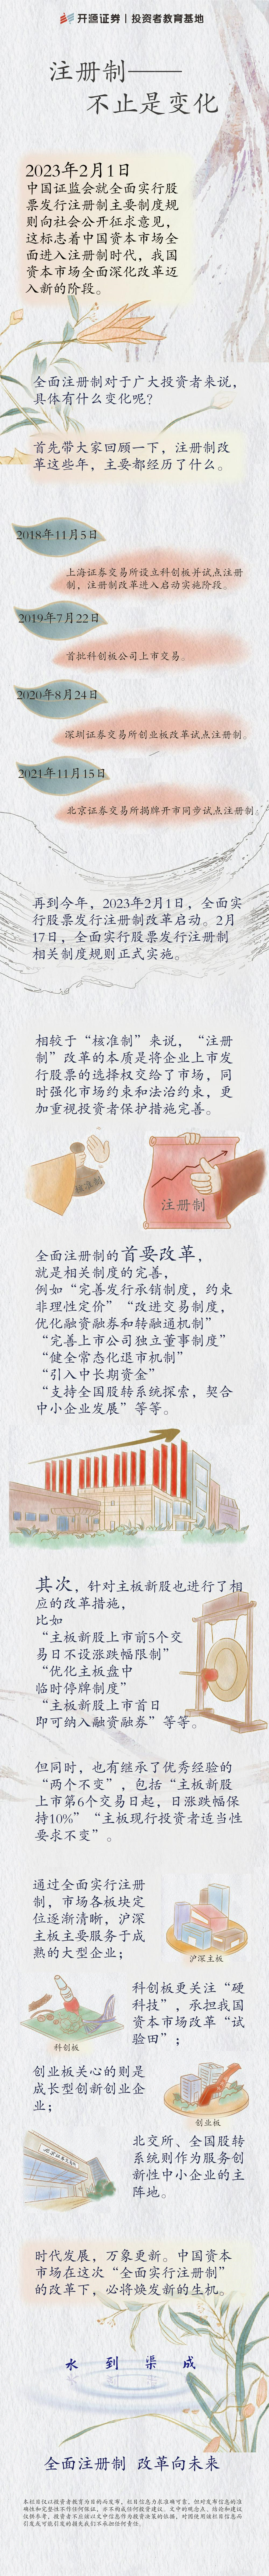 开源证券 | 投资者教育基地
注册制——
不止是变化
2023年2月1日
中国证监会就全面实行股
票发行注册制主要制度规
则向社会公开征求意见，
这标志着中国资本市场全
面进入注册制时代，我国
资本市场全面深化改革迈
入新的阶段。
全面注册制对于广大投资者来说，
具体有什么变化呢？
首先带大家回顾一下，注册制改
革这些年，主要都经历了什么。
2018年11月5日
上海证券交易所设立科创板并试点注册
制，注册制改革进入启动实施阶段。
2019年7月22日
首批科创板公司上市交易。
2020年8月24日
深圳证券交易所创业板改革试点注册制。
2021年11月15日
北京证券交易所揭牌开市同步试点注册制。
再到今年，2023年2月1日，全面实
行股票发行注册制改革启动。2月
17日，全面实行股票发行注册制
相关制度规则正式实施。
相较于“核准制”来说，“注册
制”改革的本质是将企业上市发
行股票的选择权交给了市场，同
时强化市场约束和法治约束，更
加重视投资者保护措施完善。
注册制
全面注册制的首要改革，
就是相关制度的完善，
例如“完善发行承销制度，约束
非理性定价”“改进交易制度，
优化融资融券和转融通机制”
“完善上市公司独立董事制度”
“健全常态化退市机制”
“引入中长期资金”
“支持全国股转系统探索，契合
中小企业发展”等等。
其次，针对主板新股也进行了相
应的改革措施，
比如
“主板新股上市前5个交
易日不设涨跌幅限制”
“优化主板盘中
临时停牌制度”
“主板新股上市首日
即可纳入融资融券”等等。
但同时，也有继承了优秀经验的
“两个不变”，包括“主板新股
上市第6个交易日起，日涨跌幅保
持10%”“主板现行投资者适当性
要求不变”。
通过全面实行注册
制，市场各板块定
位逐渐清晰，沪深
主板主要服务于成
熟的大型企业；
沪深主板
科创板更关注“硬
科技”，承担我国
资本市场改革“试
验田”；
科创板
创业板关心的则是
成长型创新创业企
业；
创业板
北交所、全国股转
系统则作为服务创
新性中小企业的主
阵地。
时代发展，万象更新。中国资本
市场在这次“全面实行注册制”
的改革下，必将焕发新的生机。
水到渠成
全面注册制 改革向未来
本栏目仅以投资者教育为目的而发布，栏目信息力求准确可靠，但对发布信息的准
确性和完整性不作任何保证，亦不构成任何投资建议。文中的观念点、结论和建议
仅供参考，投资者不应该以文中信息作为投资决策的依据，对因使用该栏目信息而
引发或可能引发的损失我们不承担任何责任。